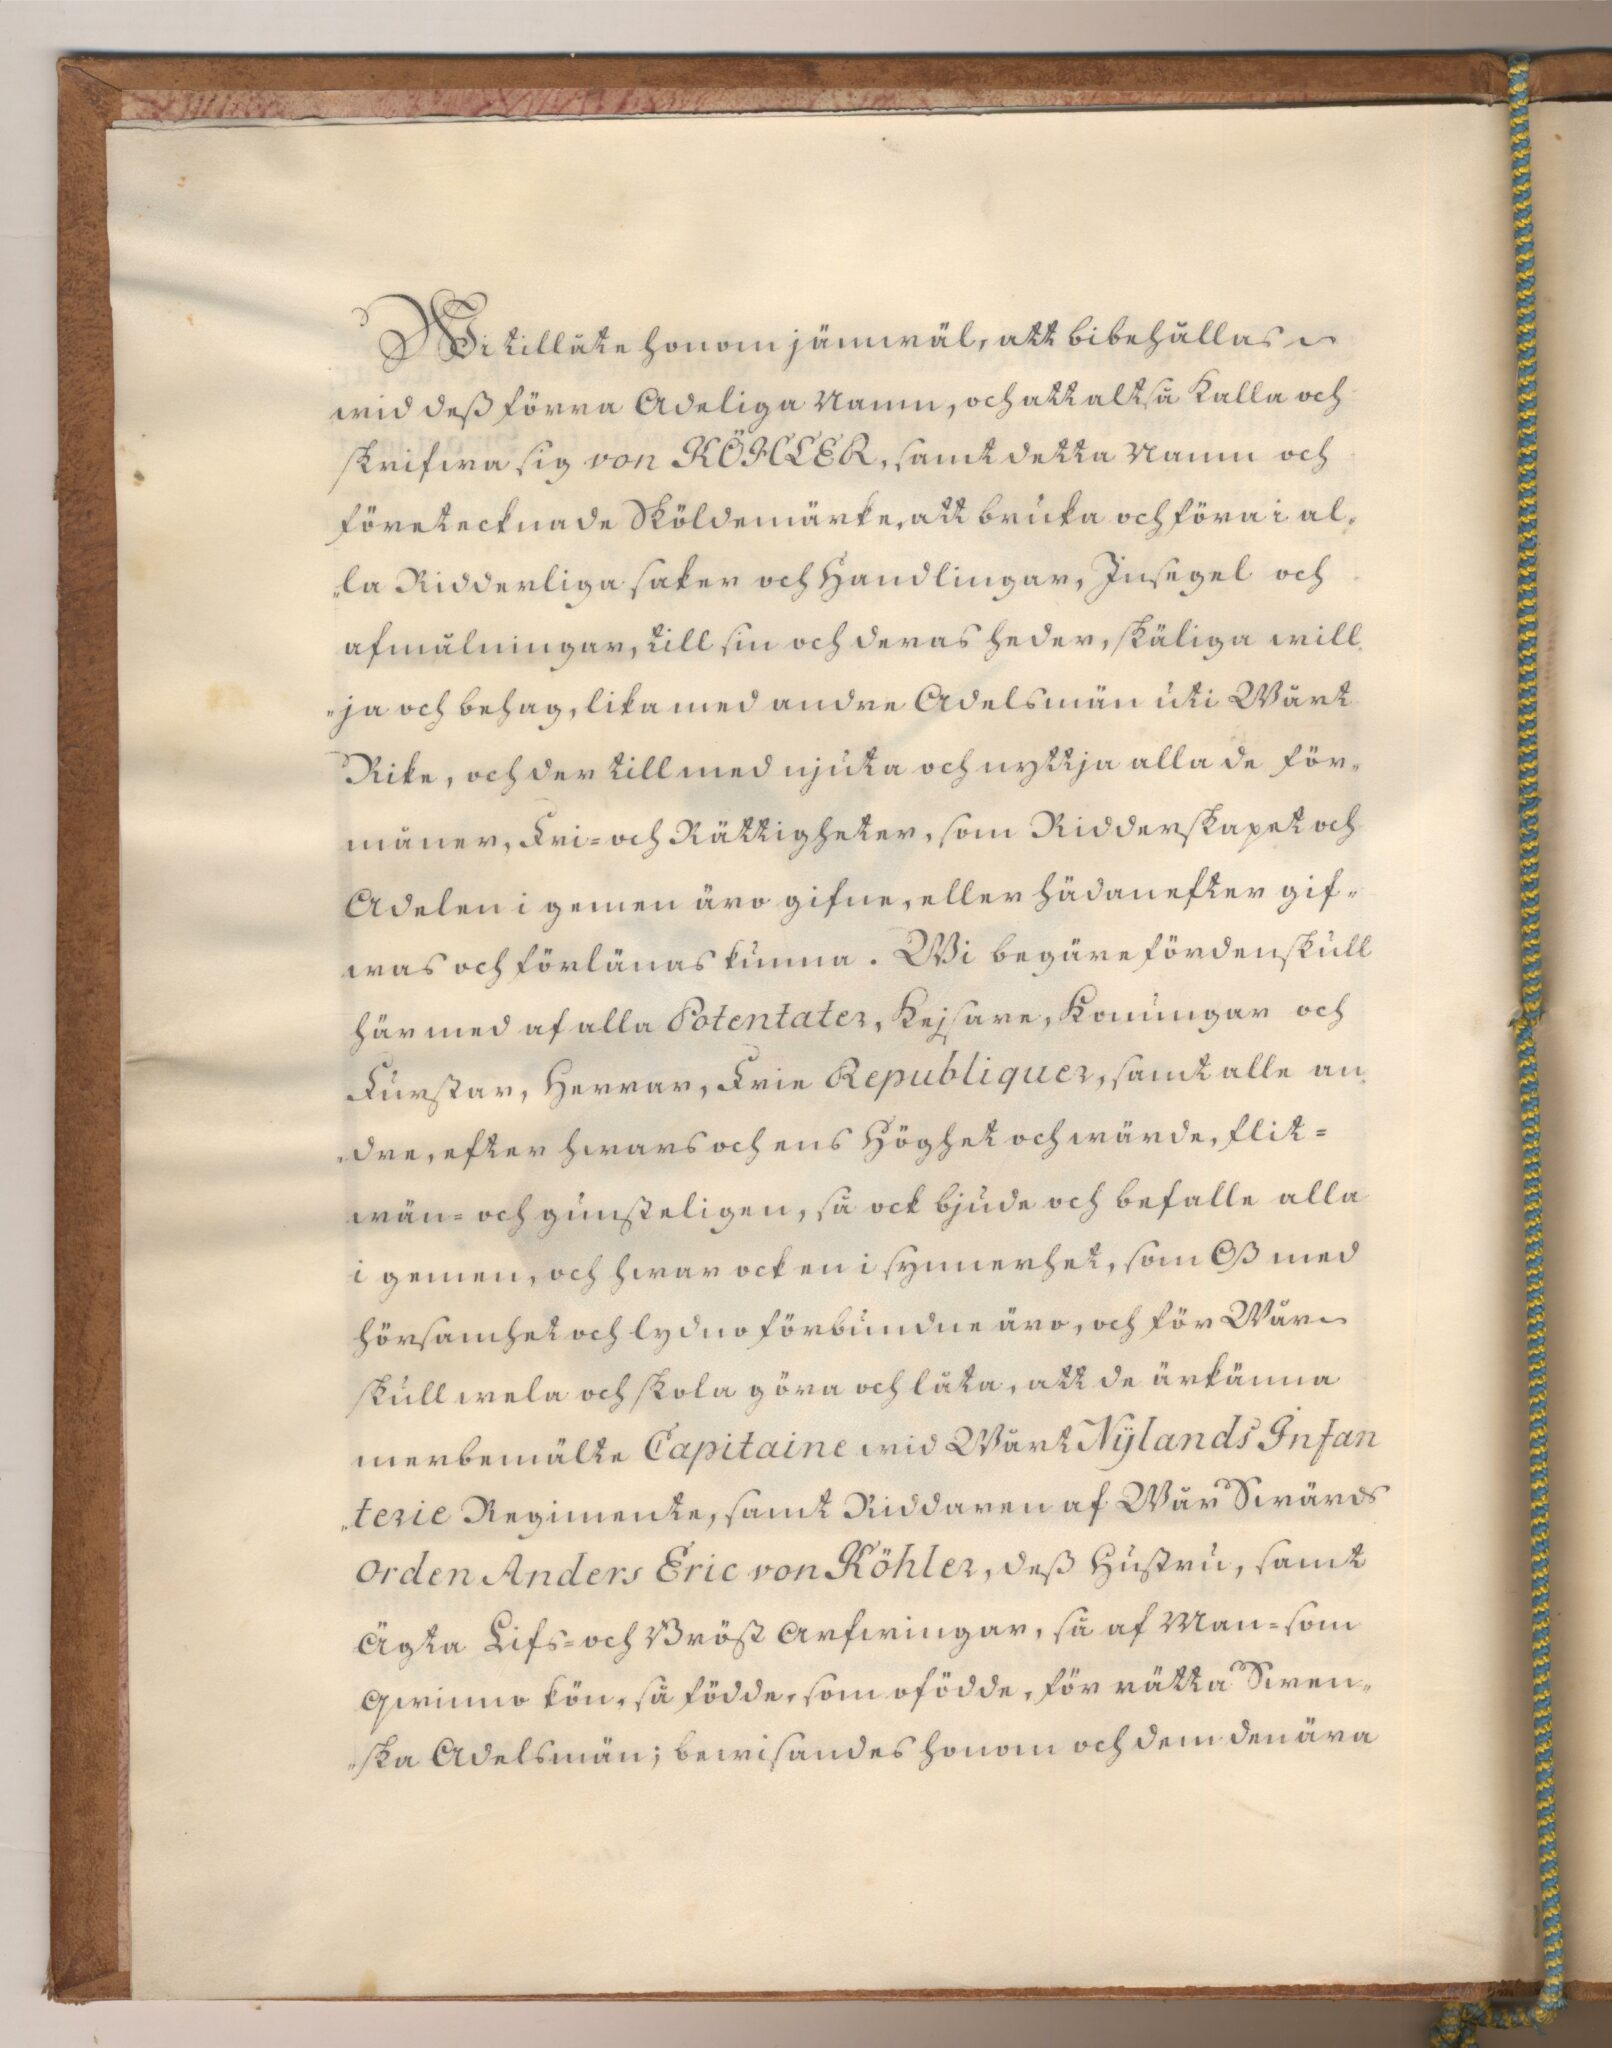 Wi tillåte honom jämwäl, att bibehållas
wid deß förra Adeliga Namn, och att altså Kalla och
skrifwa sig von KÖHLER, samt detta Namn och
företecknade Sköldemärke, att bruka och föra i al„
„la Ridderliga saker och Handlingar, Insegel och
afmålningar, till sin och deras heder, skäliga will„
„ja och behag, lika med andre Adelsmän uti Wårt
Rike, och der till med njuta och nyttja alla de för„
måner, Fri= och Rättigheter, som Ridderskapet och
Adelen i gemen äro gifne, eller hädanefter gif„
was och förlänas kunna. Wi begäre fördenskull
här med af alla Potentater, Kejsare, Konungar och
Furstar, Herrar, Frie Republiquer, samt alle an„
„dre, efter hwars och ens Höghet och wärde, flit=
wän= och gunsteligen, så ock bjude och befalle alla
i gemen, och hwar ock en i synnerhet, som Oß med
hörsamhet och lydno förbundne äro, och för Wår
skull wela och skola göra och låta, att de ärkänna
merbemälte Capitaine wid Wårt Nÿlands Infan
„terie Regimente, samt Riddaren af Wår Swärds
Orden Anders Eric von Köhler, deß Hustru, samt
Ägta Lifs= och Bröst Arfwingar, så af Man= som
Qwinno kön, så födde, som ofödde, för rätta Swen„
„ska Adelsmän; bewisandes honom och dem den ära